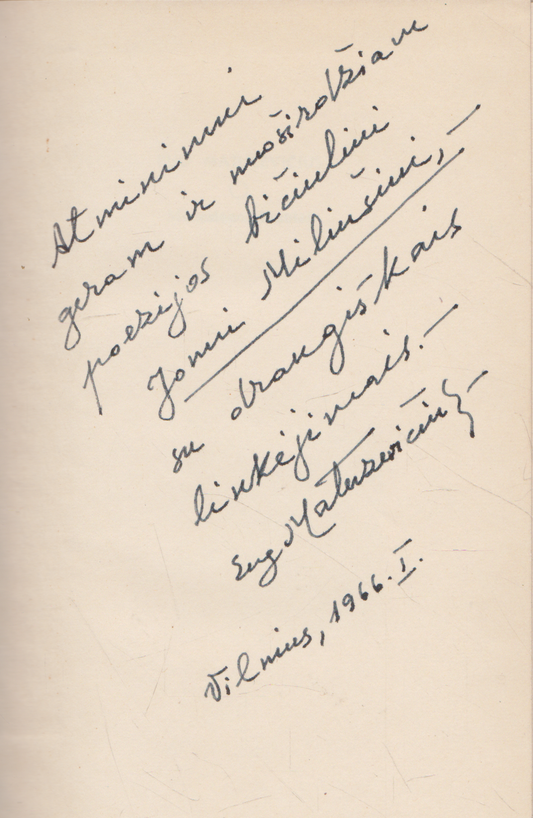 Atminimui
geram ir nuoširdžiam
poezijos bičiuliui
Jonui Miliušiui, –
su draugiškais
linkėjimais. –
Eug Matuzevičius
Vilnius, 1966. I.